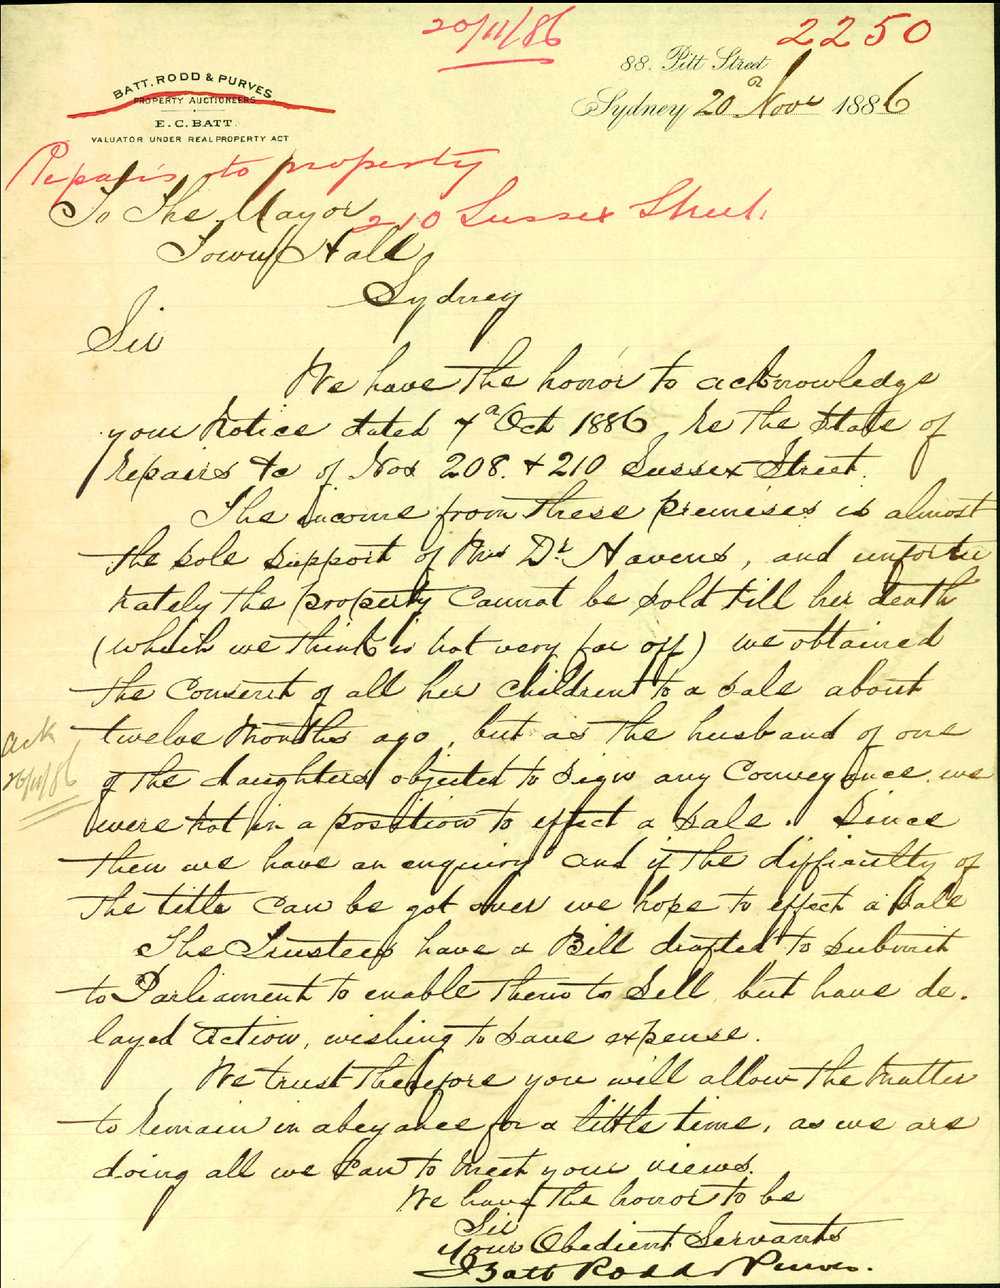 20/11/86
2250
88. Pitt Street
Sydney 20th Novr 1886
BATT. RODD & PURVES.
PROPERTY AUCTIONEERS
E. C. BATT.
VALUATOR UNDER REAL PROPERTY ACT
Repairs to property
210 Sussex Street.
To The Mayor
Town Hall
Sydney
Sir
We have the honor to acknowledge
your Notice dated 7th Oct 1886 re the State of
repairs &c of Nos 208. & 210 Sussex Street.
The income from these premises is almost
the sole support of Mrs Dr. Havens, and unfortu
nately the property cannot be sold till her death
(which we think is not very far off) we obtained
the consent of all her children to a sale about
twelve months ago, but as the husband of one
of the daughters objected to sign any Conveyance we
were not in a position to effect a sale. Since
then we have an enquiry and if the difficulty of
the title can be got over we hope to effect a sale
The Trustees have a Bill drafted to submit
to Parliament to enable them to sell but have de.
layed action, wishing to save expense.
We trust therefore you will allow the matter
to remain in abeyance for a little time, as we are
doing all we can to meet your views.
We have the honor to be
Sir
Your Obedient Servants
Batt Rodd & Purves.
Ack
20/11/86